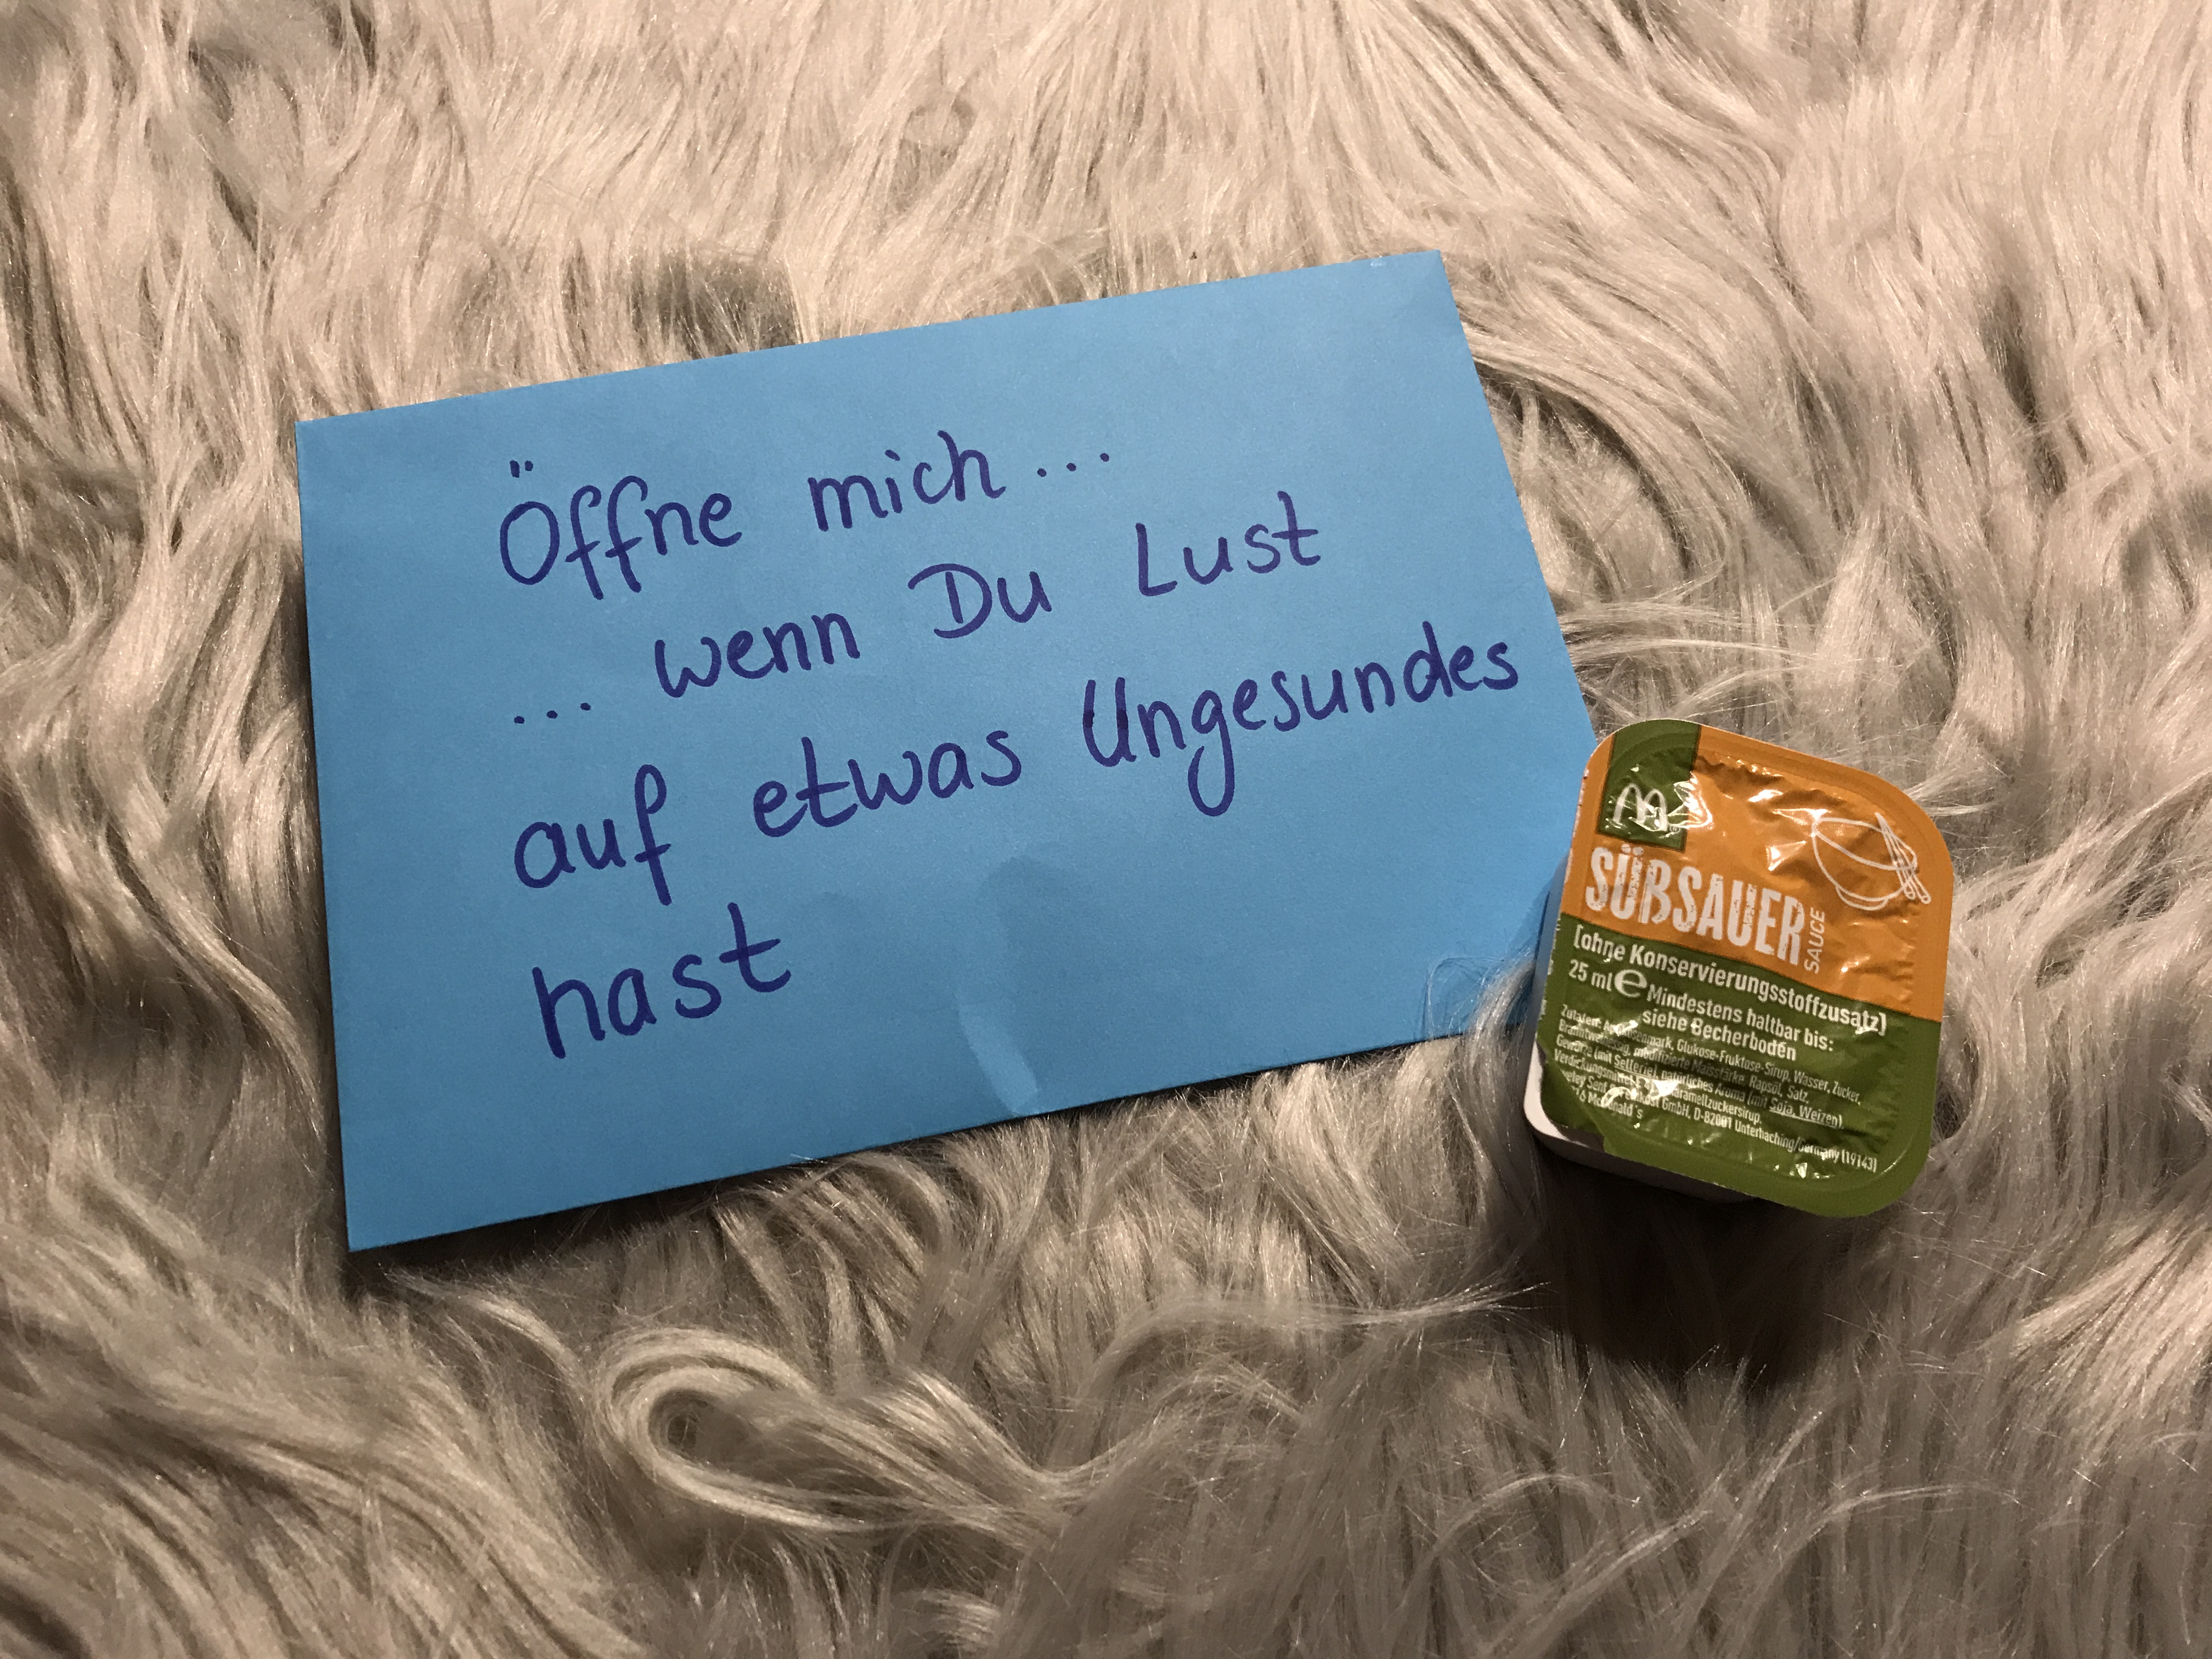 Öffne mich...
... wenn Du Lust
auf etwas Ungesundes
hast
M
SÜßSAUER
SAUCE
[ohne Konservierungsstoffzusatz]
25 ml e Mindestens haltbar bis:
siehe Becherboden
Zutaten: Glukose-Fruktose-Sirup, Wasser, Zucker,
modifizierte Maisstärke, Rapsöl, Salz,
Gewürze (mit Sellerie), natürliches Aroma (mit Soja, Weizen),
Verdickungsmittel Karamellzuckersirup.
GmbH, D-82001 Unterhaching/Germany (19143)
McDonald's